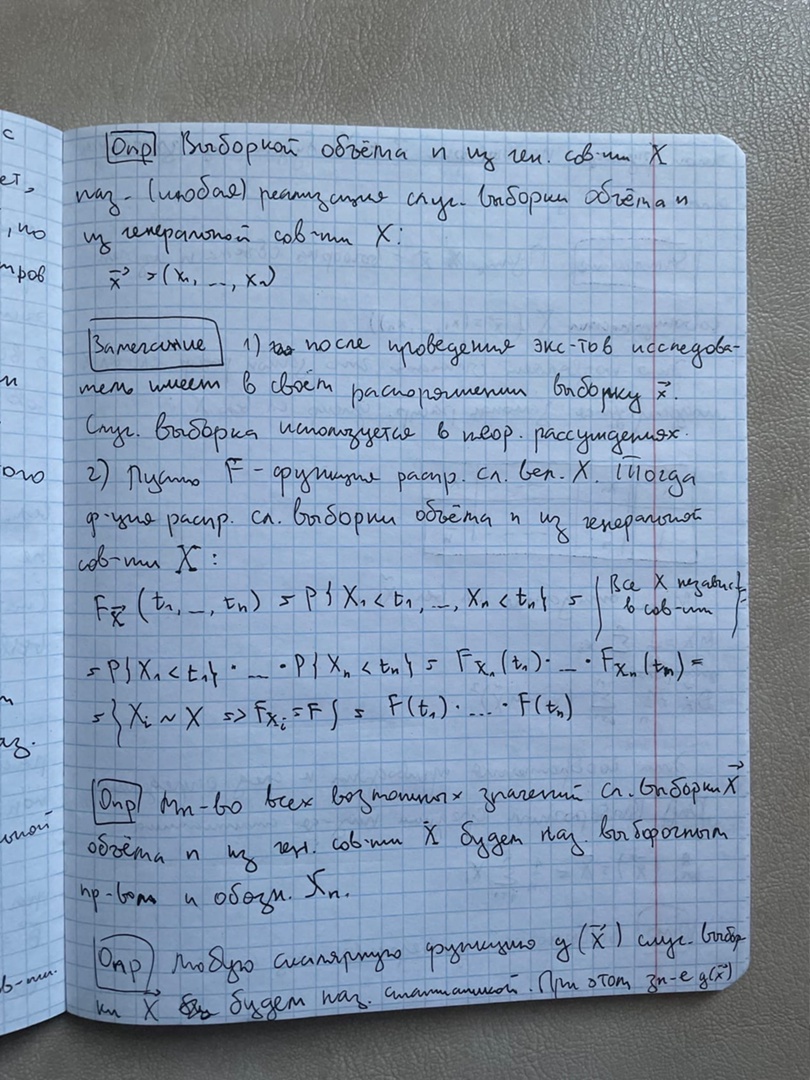 с
ет,
, но
тров
ого
аз.
льной
в-ти.
Опр Выборкой объёма n из ген. сов-ти X
наз. (любая) реализация случ. выборки объёма n
из генеральной сов-ти X:
x⃗ = (x₁, ..., xₙ)
Замечание 1) после проведения экс-тов исследова-
тель имеет в своём распоряжении выборку x⃗.
Случ. выборка используется в теор. рассуждениях.
2) Пусть F - функция распр. сл. вел. X. Тогда
ф-ция распр. сл. выборки объёма n из генеральной
сов-ти X:
F_X⃗ (t₁, ..., tₙ) = P{X₁ < t₁, ..., Xₙ < tₙ} = {Все X независ. в сов-ти} =
= P{X₁ < t₁} · ... · P{Xₙ < tₙ} = F_X₁(t₁) · ... · F_Xₙ(tₙ) =
= {Xᵢ ~ X => F_Xᵢ = F} = F(t₁) · ... · F(tₙ)
Опр Мн-во всех возможных значений сл. выборки X⃗
объёма n из ген. сов-ти X будем наз. выборочным
пр-вом и обозн. Xₙ.
Опр Любую скалярную функцию g(X⃗) случ. выбор
ки X⃗ будем наз. статистикой. При этом зн-е g(x⃗)